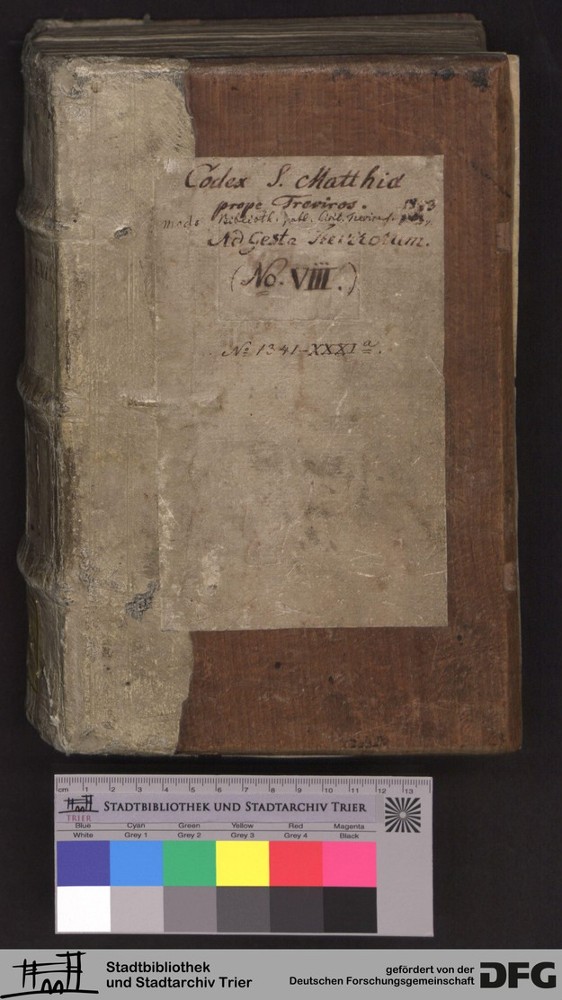 Codex S. Matthiä
prope Treviros.
modo Biblioth. publ. Civit. Trevirens.
Ad Gesta Trevirorum.
(No. VIII.)
No 1341-XXXI a.
cm 1 2 3 4 5 6 7 8 9 10 11 12 13
TRIER
STADTBIBLIOTHEK UND STADTARCHIV TRIER
Blue Cyan Green Yellow Red Magenta
White Grey 1 Grey 2 Grey 3 Grey 4 Black
Stadtbibliothek
und Stadtarchiv Trier
gefördert von der
Deutschen Forschungsgemeinschaft
DFG